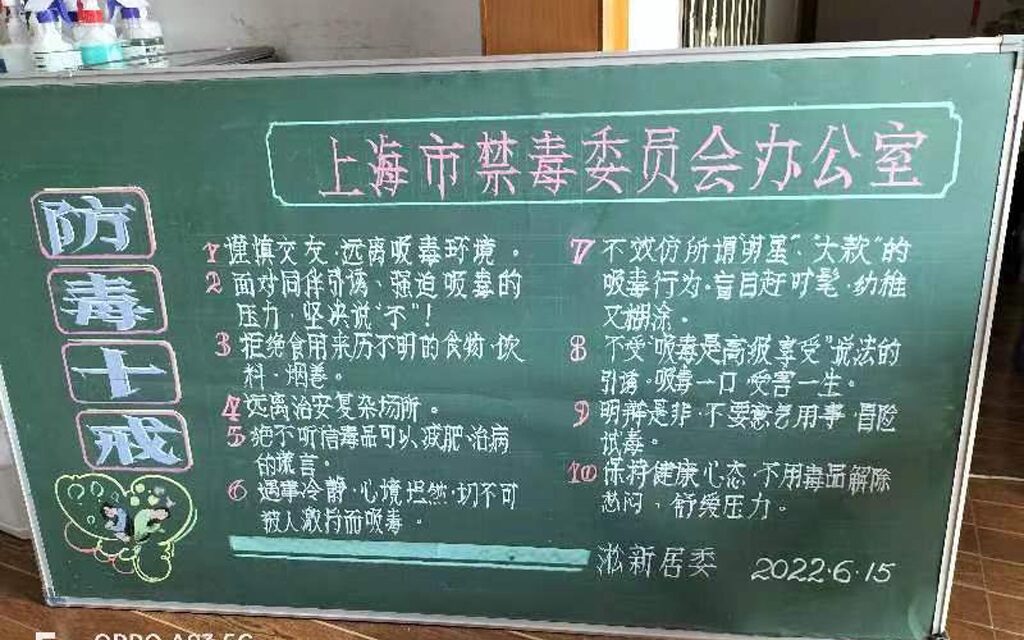 上海市禁毒委员会办公室
防毒十戒
1 谨慎交友、远离吸毒环境。
2 面对同伴引诱、强迫吸毒的
压力、坚决说"不"！
3 拒绝食用来历不明的食物·饮
料·烟卷。
4 远离治安复杂场所。
5 绝不听信毒品可以减肥·治病
的谎言。
6 遇事冷静·心境坦然·切不可
被人激将而吸毒。
7 不效仿所谓"明星"、"大款"的
吸毒行为·盲目赶时髦·幼稚
又糊涂。
8 不受"吸毒是高级享受"说法的
引诱·吸毒一口·受害一生。
9 明辩是非·不要意气用事·冒险
试毒。
10 保持健康心态·不用毒品解除
愁闷、舒缓压力。
淞新居委 2022·6·15
OPPO A93 5G